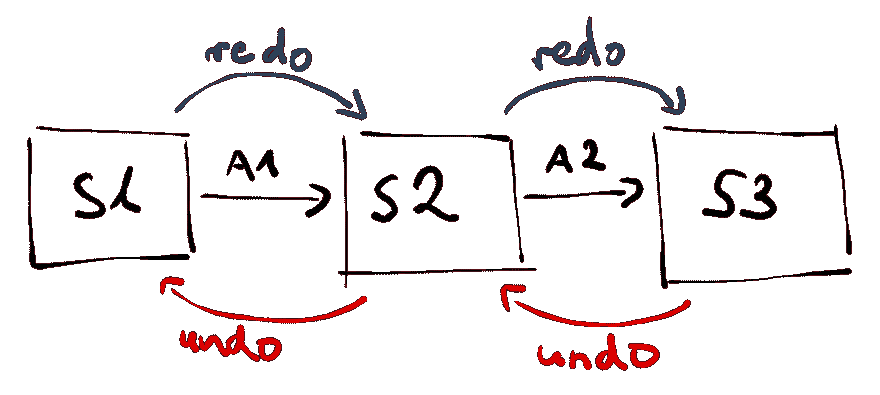 redo redo
S1 A1 S2 A2 S3
undo undo